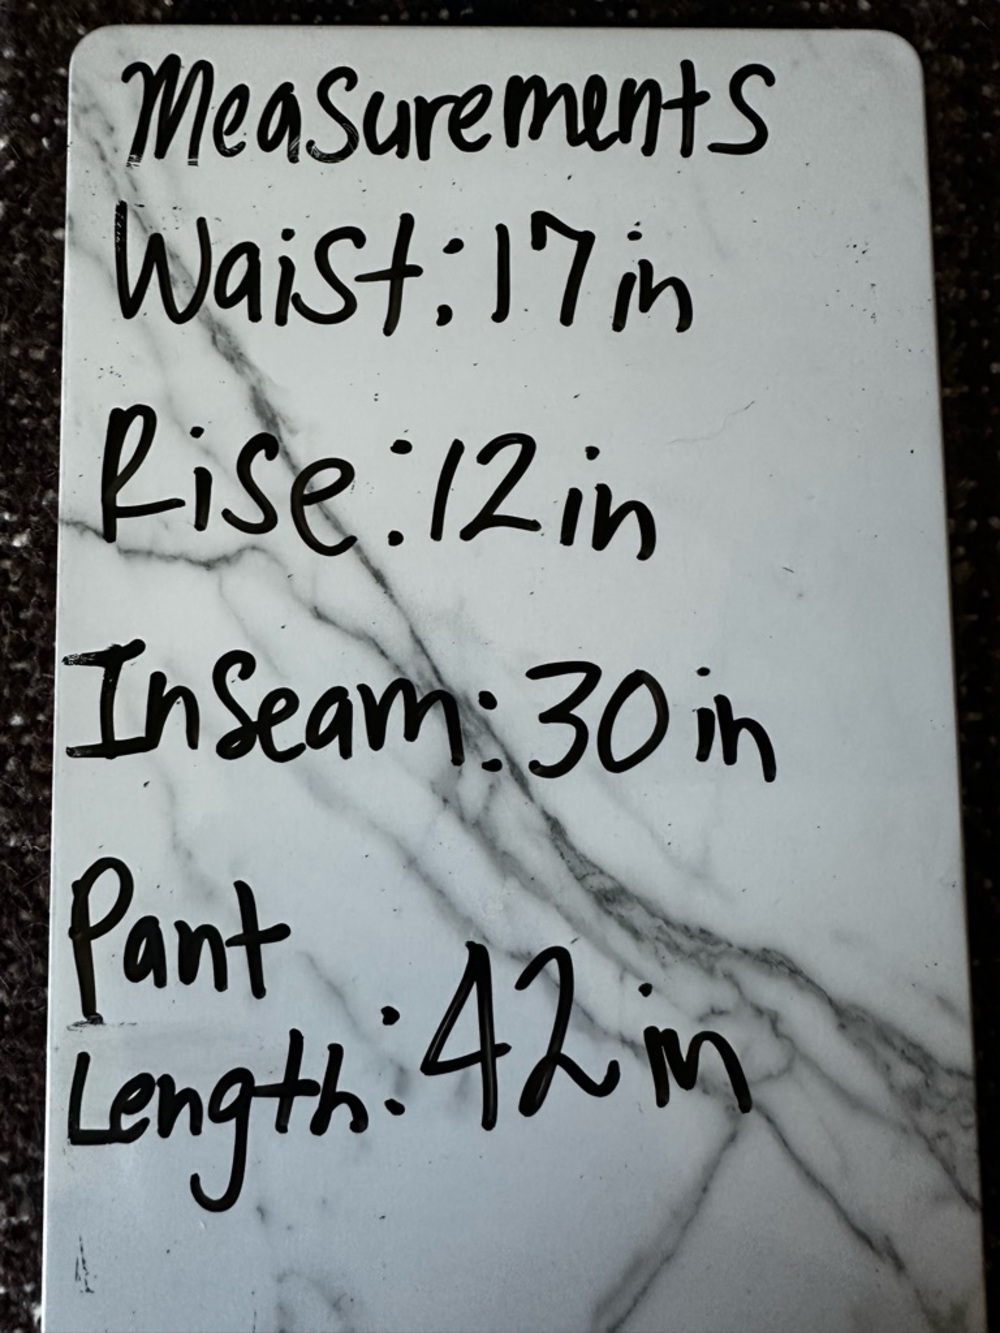 Measurements
Waist: 17 in
Rise: 12 in
Inseam: 30 in
Pant
Length: 42 in